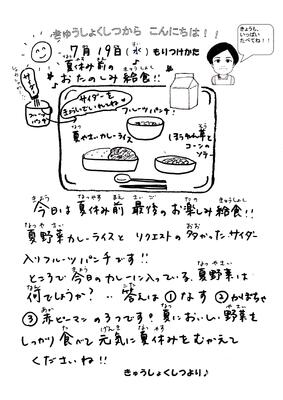 きゅうしょくしつから こんにちは!!
きょうも、
いっぱい
たべてね!!
7月19日(水) もりつけかた
夏休み前の
おたのしみ給食!!
サイダー
フルーツ
パンチ
サイダーを
フルーツパンチ
夏やさいカレーライス
ほうれん草と
コーンの
ソテー
今日は夏休み前 最後のお楽しみ給食!!
夏野菜カレーライスと リクエストの多かったサイダー
入りフルーツパンチです!!
ところで今日のカレーに入っている、夏野菜は
何でしょうか? ‥ 答えは ①なす ②かぼちゃ
③赤ピーマンの3つです! 夏においしい野菜を
しっかり食べて元気に夏休みをむかえて
くださいね!!
きゅうしょくしつより♪